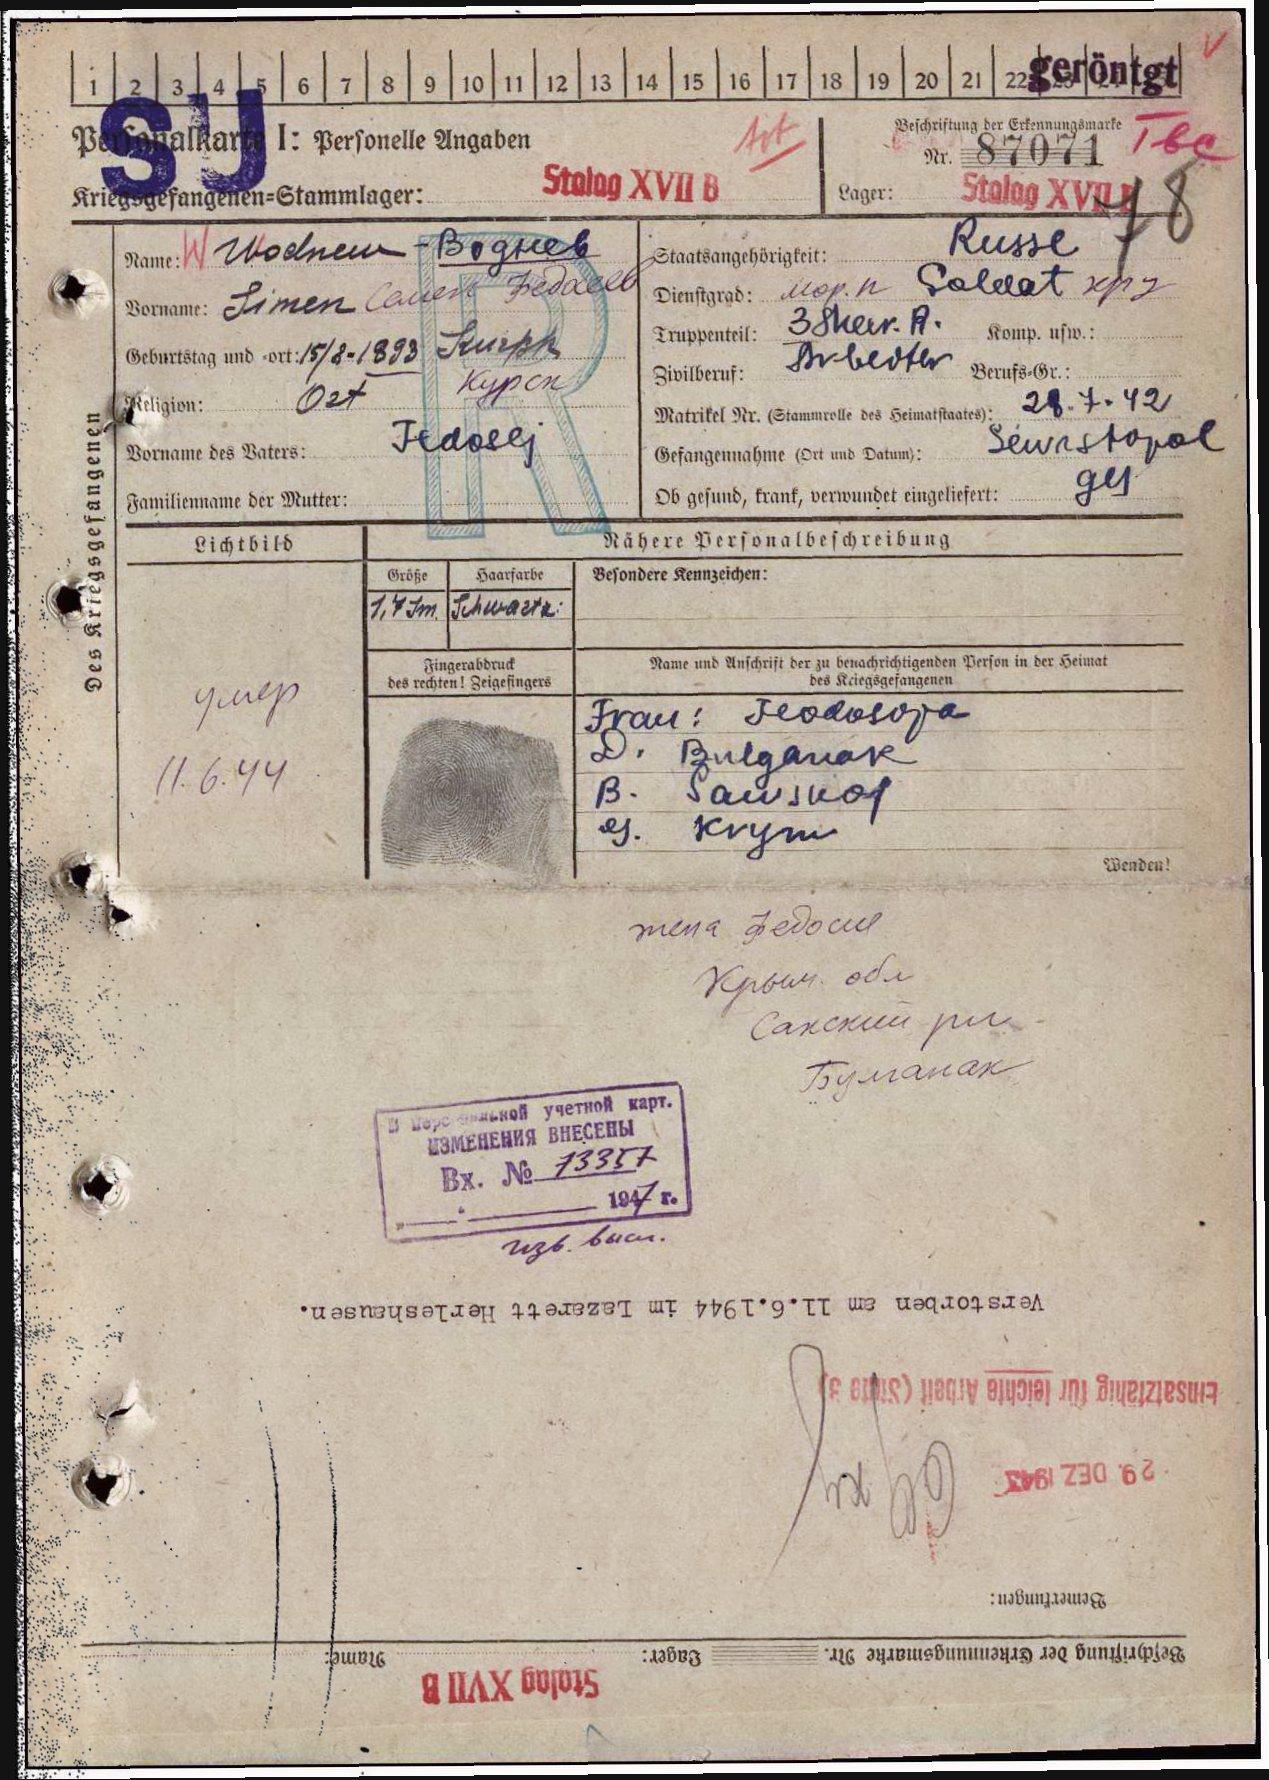 1 2 3 4 5 6 7 8 9 10 11 12 13 14 15 16 17 18 19 20 21 22
geröntgt
SU
Personalkarte I: Personelle Angaben
Beschriftung der Erkennungsmarke
Nr. 87071
Tbc
Kriegsgefangenen=Stammlager: Stalag XVII B
Lager: Stalag XVII B
78
R
Des Kriegsgefangenen
Name: W Wodnew - Воднев
Vorname: Simen Семен Федосеев
Geburtstag und -ort: 15/8-1893 Kursk
Курск
Religion: Ort
Vorname des Vaters: Fedosej
Familienname der Mutter:
Staatsangehörigkeit: Russe
Dienstgrad: мор.п Soldat кр
Truppenteil: Komp. usw.:
Zivilberuf: Arbeiter Berufs-Gr.:
Matrikel Nr. (Stammrolle des Heimatstaates): 28.7.42
Gefangennahme (Ort und Datum): Sewastopol
Ob gesund, krank, verwundet eingeliefert: ges
Lichtbild
Nähere Personalbeschreibung
Größe Haarfarbe Besondere Kennzeichen:
Schwartz:
Fingerabdruck
des rechten! Zeigefingers
Name und Anschrift der zu benachrichtigenden Person in der Heimat
des Kriegsgefangenen
умер
11.6.44
Frau: Feodosoja
D. Bulganak
B. Sawskof
G. Krym
Wenden!
жена Федосия
Крым. обл
Сакский рн
Булганак
В персональной учетной карт.
ИЗМЕНЕНИЯ ВНЕСЕНЫ
Вх. № 73357
1947 г.
изв. высл.
Verstorben am 11.6.1944 im Lazarett Herleshausen.
Einsatzfähig für leichte Arbeit (Stufe 3)
29. DEZ. 1943
Bemerkungen:
Beschriftung der Erkennungsmarke Nr. Lager: Name:
Stalag XVII B